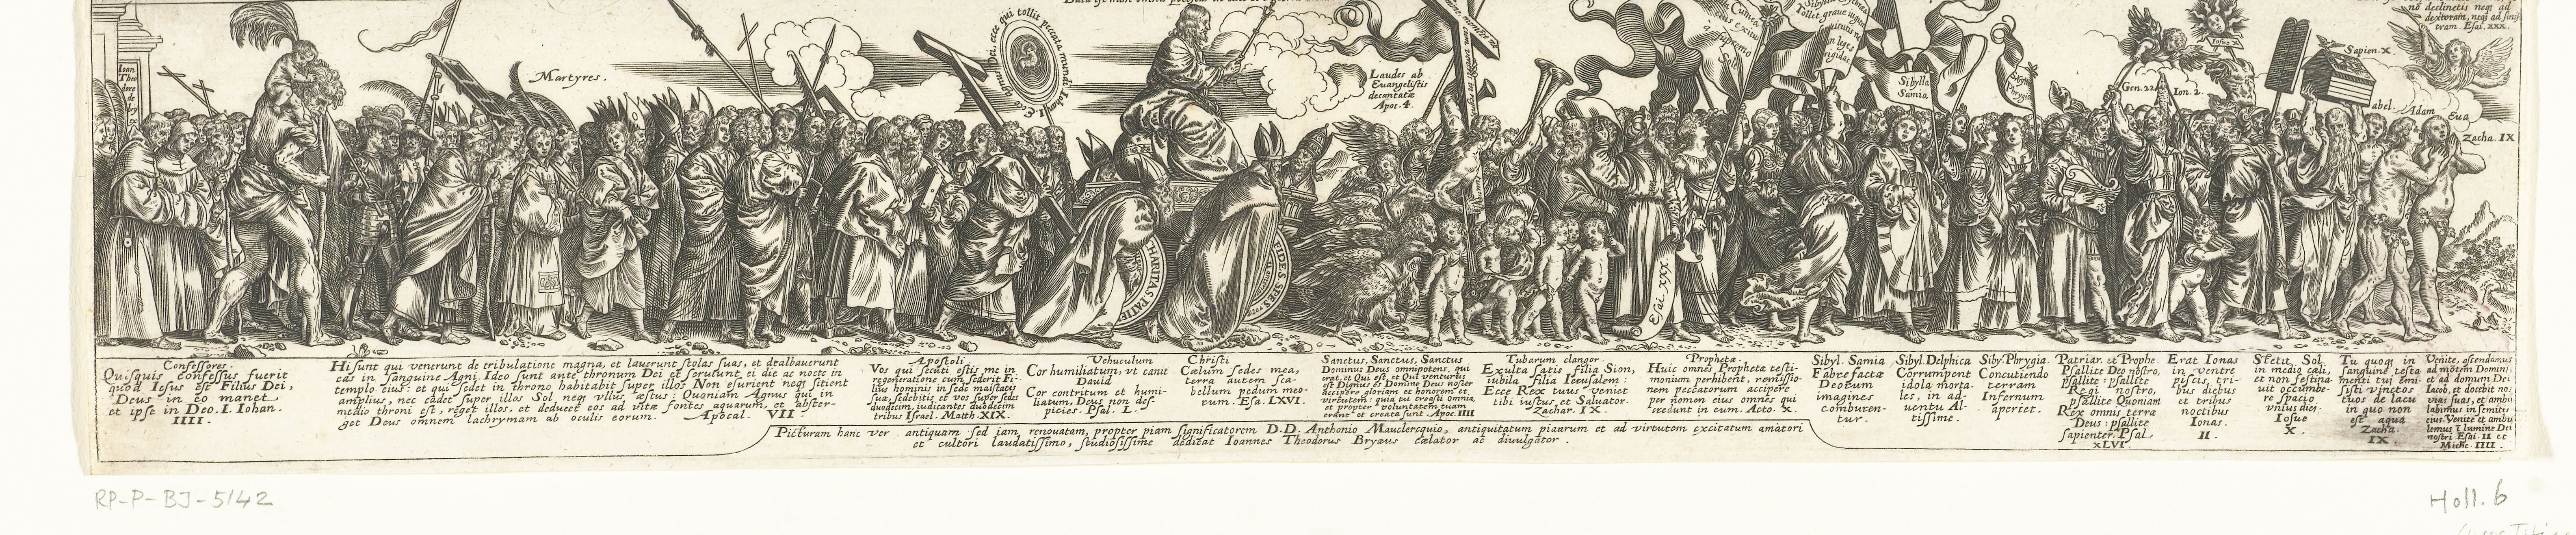 nõ declinetis neqz ad
dexteram, neqz ad sinis
tram. Esai. XXX.
Ecce agnus Dei, ecce qui tollit peccata mundi. Iohan. I.
Ioan
Theo
dore
de
Bry
Martyres.
Laudes ab
Euangelistis
decantatæ
Apoc. 4.
Sibylla
Samia
Sibylla
Phrygia
Iosue X
Gen. 22.
Ion. 2.
Sapien. X.
abel.
Adam
Eua
Zacha. IX
CHARITAS PATIE
FIDES SPES
Esai. XXX.
Confessores.
Quisquis confessus fuerit
quod Iesus est Filius Dei,
Deus in eo manet
et ipse in Deo. I. Iohan.
IIII.
Hi sunt qui venerunt de tribulatione magna, et lauerunt stolas suas, et dealbauerunt
eas in sanguine Agni. Ideo sunt ante thronum Dei et seruiunt ei die ac nocte in
templo eius: et qui sedet in throno habitabit super illos Non esurient neqz sitient
amplius, nec cadet super illos Sol neqz vllus æstus: Quoniam Agnus qui in
medio throni est, reget illos, et deducet eos ad vitæ fontes aquarum, et abster-
get Deus omnem lachrymam ab oculis eorum. Apocal. VII.
Apostoli.
Vos qui secuti estis me in
regeneratione cum sederit Fi-
lius hominis in sede maiestatis
suæ, sedebitis et vos super sedes
duodecim, iudicantes duodecim
tribus Israel. Math. XIX.
Vehuculum Christi
Cor humiliatum, vt canit
Dauid
Cor contritum et humi-
liatum, Deus non des-
picies. Psal. L.
Cælum sedes mea,
terra autem sca-
bellum pedum meo-
rum. Esa. LXVI.
Sanctus, Sanctus, Sanctus
Dominus Deus omnipotens, qui
erat, et Qui est, et Qui venturus
est Dignus es Domine Deus noster
accipere gloriam et honorem et
virtutem: quia tu creasti omnia
et propter voluntatem tuam
erant et creata sunt. Apoc. IIII
Tubarum clangor.
Exulta satis filia Sion,
iubila filia Ierusalem:
Ecce Rex tuus veniet
tibi iustus et Saluator.
Zachar. IX.
Prophetæ.
Huic omnes Prophetæ testi-
monium perhibent, remissio-
nem peccatorum accipere
per nomen eius omnes qui
credunt in eum. Acto. X.
Sibyl. Samia
Fabrefactæ
Deorum
imagines
comburen-
tur.
Sibyl. Delphica
Corrumpent
idola morta-
les, in ad-
uentu Al-
tissime.
Siby. Phrygia.
Concutiendo
terram
Infernum
aperiet.
Patriar. et Prophe
Psallite Deo nostro,
psallite: psallite
Regi nostro,
psallite Quoniam
Rex omnis terra
Deus: psallite
sapienter. Psal
XLVI.
Erat Ionas
in ventre
piscis, tri-
bus diebus
et tribus
noctibus
Ionas.
II.
Stetit Sol
in medio cæli,
et non festina-
uit occumbe-
re spacio
vnius diei.
Iosue
X.
Tu quoqz in
sanguine testa
menti tui emi-
sisti vinctos
tuos de lacu
in quo non
est aqua
Zacha.
IX.
Venite, ascendamus
ad montem Domini,
et ad domum Dei
Iacob, et docebit nos
vias suas, et ambu
labimus in semitis
eius. Venite et ambu
lemus ĩ lumine Dei
nostri Esai. II et
Miche. IIII.
Picturam hanc ver antiquam sed jam renouatam, propter piam significatorem D.D. Anthonio Mauclercquio, antiquitatum piarum et ad virtutem excitatum amatori
et cultori laudatissimo, studiosissime dedicat Ioannes Theodorus Bryæus cælator ac diuulgator.
RP-P-BI-5142
Holl. 6